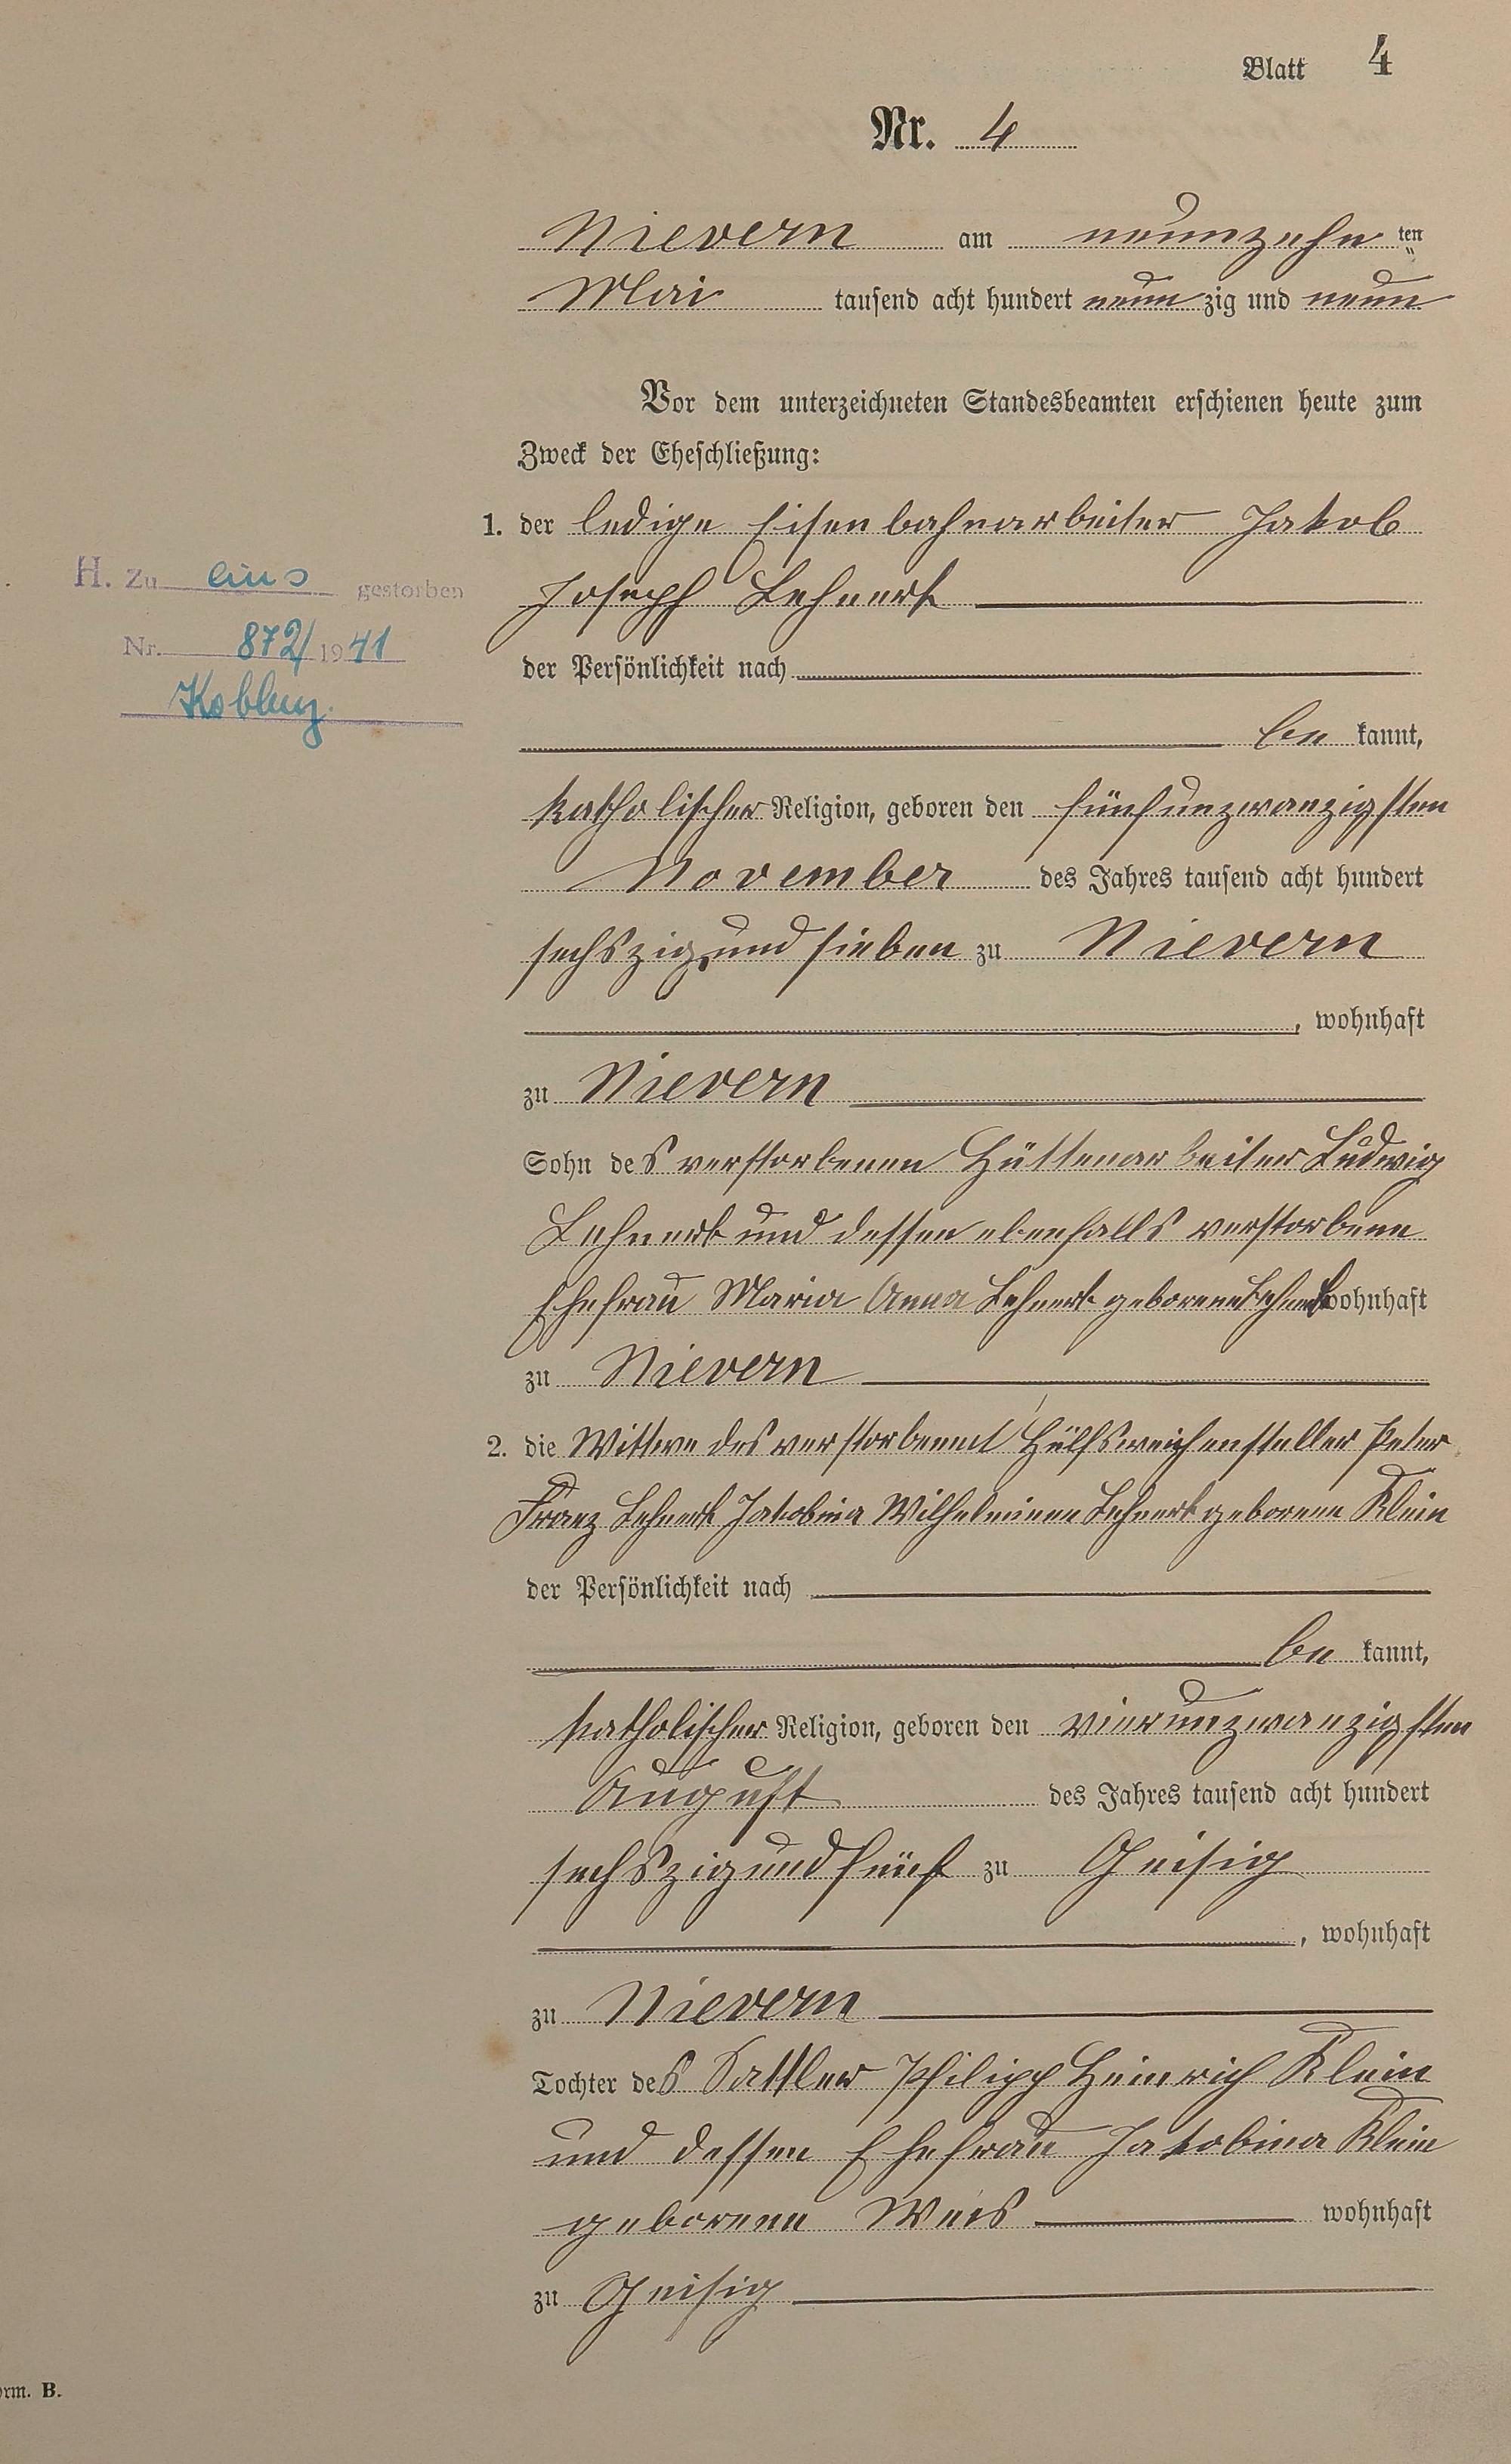 Blatt 4
Nr. 4
Nievern am neunzehn ten
Mai tausend acht hundert neun zig und neun
Vor dem unterzeichneten Standesbeamten erschienen heute zum
Zweck der Eheschließung:
1. der ledige Eisenbahnarbeiter Jakob
Joseph Lehnert
der Persönlichkeit nach
be kannt,
katholischer Religion, geboren den fünfunzwanzigsten
November des Jahres tausend acht hundert
sechszig und sieben zu Nievern
, wohnhaft
zu Nievern
Sohn des verstorbenen Hüttenarbeiter Ludwig
Lehnert und dessen ebenfalls verstorbene
Ehefrau Maria Anna Lehnert geborene Lehnert wohnhaft
zu Nievern
2. die Wittwe des verstorbenen Hülfsweichensteller Peter
Franz Lehnert Jakobina Wilhelmine Lehnert geborene Klein
der Persönlichkeit nach
be kannt,
katholischer Religion, geboren den vierunzwanzigsten
August des Jahres tausend acht hundert
sechszig und fünf zu Geisig
, wohnhaft
zu Nievern
Tochter des Sattler Philipp Heinrich Klein
und dessen Ehefrau Jakobina Klein
geborene Weis wohnhaft
zu Geisig
H. Zu eins gestorben
Nr. 872/1941
Koblenz.
orm. B.